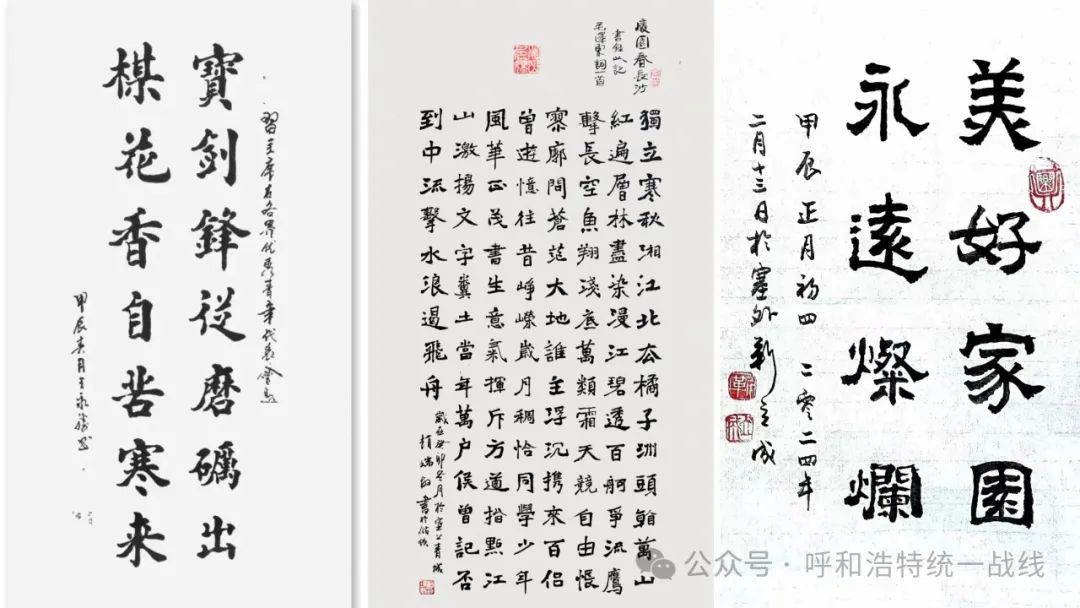 習主席在各界优秀青年代表會
寶剑鋒從磨礪出
楳花香自苦寒来
甲辰春月王永勝书
沁園春長沙
毛澤東詞一首
獨立寒秋湘江北厺橘子洲頭看萬山
紅遍層林盡染漫江碧透百舸爭流鷹
擊長空魚翔淺底萬類霜天競自由悵
寥廓問蒼茫大地誰主浮沉携來百侣
曾遊憶往昔崢嶸歲月稠恰同學少年
風華正茂書生意氣揮斥方遒指點江
山激揚文字糞土當年萬户侯曾記否
到中流擊水浪遏飛舟
歲在癸卯冬月於塞上青城
美好家園
永遠燦爛
甲辰正月初四 二零二四年
二月十三日於塞外
公众号·呼和浩特统一战线